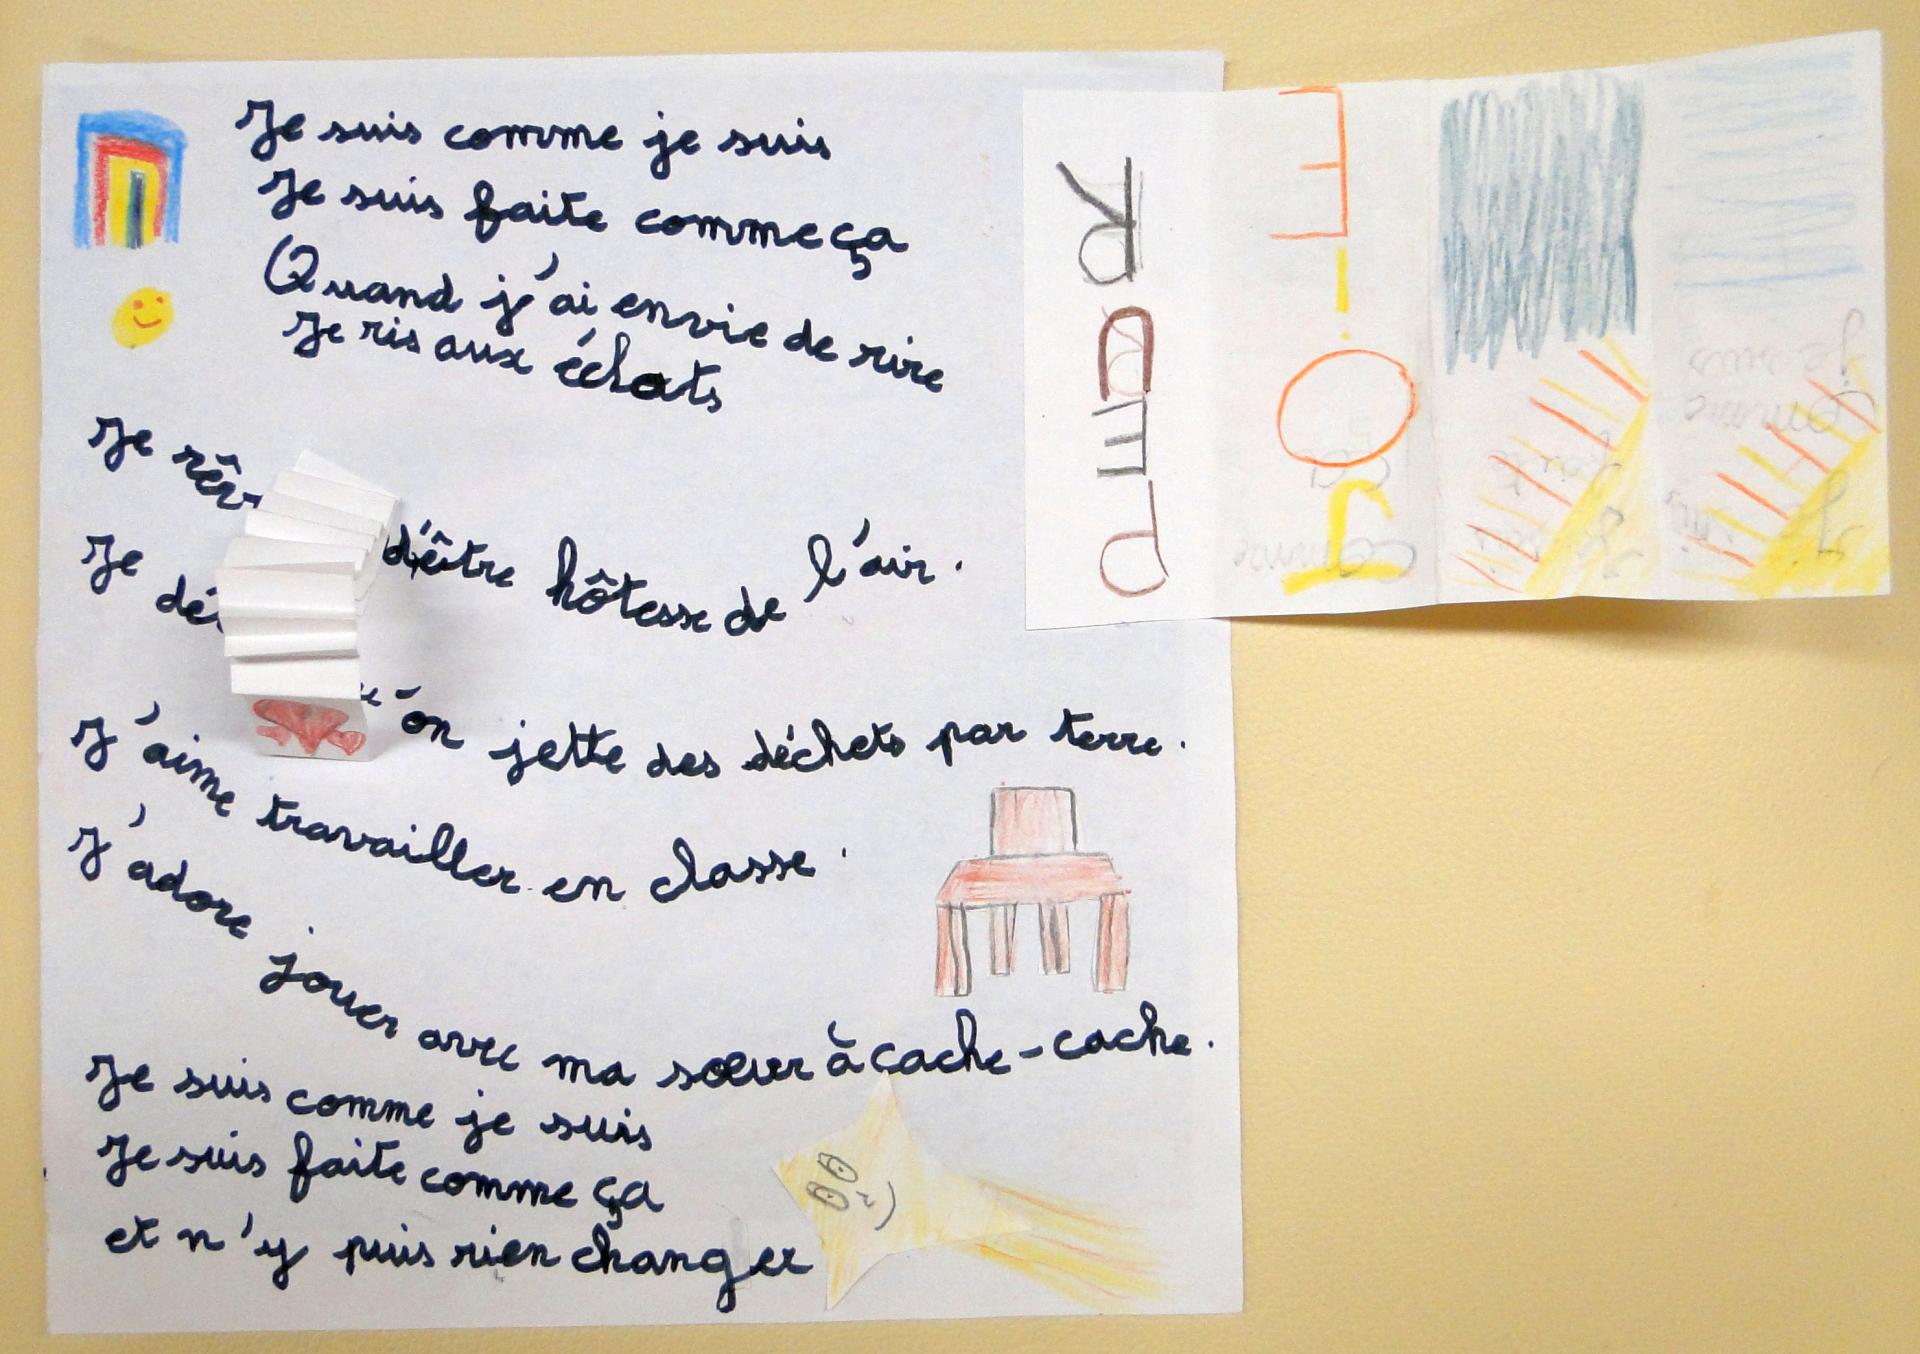 Je suis comme je suis
Je suis faite comme ça
Quand j'ai envie de rire
Je ris aux éclats
Je rêv d'être hôtesse de l'air.
Je dé u'on jette des déchets par terre.
J'aime travailler en classe.
J'adore jouer avec ma sœur à cache-cache.
Je suis comme je suis
Je suis faite comme ça
et n'y puis rien changer